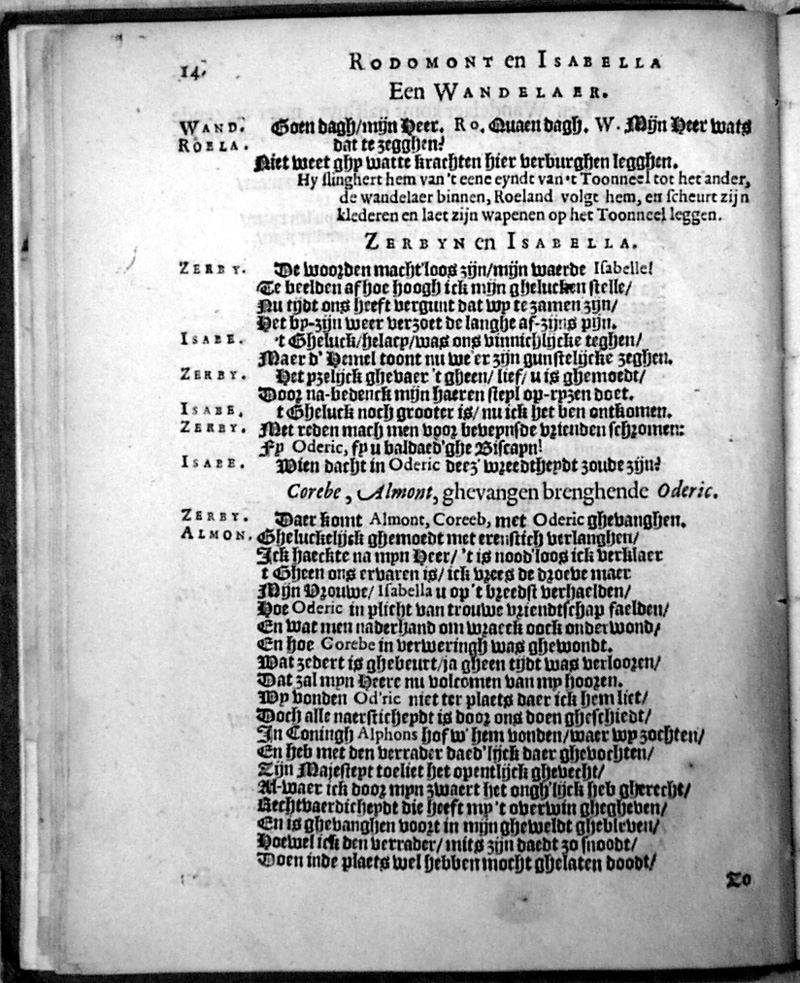 14.
RODOMONT en ISABELLA
Een WANDELAER.
WAND. Goen dagh/mijn Heer. Ro. Quaen dagh. W. Mijn Heer wats
ROELA. dat te zegghen?
Niet weet ghy watte krachten hier verburghen legghen.
Hy slinghert hem van 't eene eyndt van 't Toonneel tot het ander,
de wandelaer binnen, Roeland volgt hem, en scheurt zijn
klederen en laet zijn wapenen op het Toonneel leggen.
ZERBYN en ISABELLA.
ZERBY. De woorden macht'loos zijn/mijn waerde Isabelle!
Te beelden af hoe hoogh ick mijn ghelucken stelle/
Nu tijdt ons heeft vergunt dat wy te zamen zijn/
Het by-zijn weer verzoet de langhe af-zijns pijn.
ISABE. 't Gheluck/helacy/was ons vinnichlijcke teghen/
Maer d' Hemel toont nu we'er zijn gunstelijcke zeghen.
ZERBY. Het yzelijck ghevaer 't gheen/ lief/ u is ghemoedt/
Door na-bedenck mijn haeren steyl op-ryzen doet.
ISABE. t Gheluck noch grooter is/ nu ick het ben ontkomen.
ZERBY. Met reden mach men voor beveynsde vrienden schromen:
Fy Oderic, fy u baldaed'ghe Biscayn!
ISABE. Wien dacht in Oderic deez' wreedtheydt zoude zijn?
Corebe, Almont, ghevangen brenghende Oderic.
ZERBY. Daer komt Almont, Coreeb, met Oderic ghevanghen.
ALMON. Gheluckelijck ghemoedt met erenstich verlanghen/
Ick haeckte na myn Heer/ 't is nood'loos ick verklaer
t Gheen ons ervaren is/ ick vrees de droeve maer
Mijn Vrouwe/ Isabella u op 't breedst verhaelden/
Hoe Oderic in plicht van trouwe vriendtschap faelden/
En wat men naderhand om wraeck oock onderwond/
En hoe Corebe in verweringh was ghewondt.
Wat zedert is ghebeurt/ja gheen tijdt was verlooren/
Dat zal myn Heere nu volcomen van my hooren.
Wy vonden Od'ric niet ter plaets daer ick hem liet/
Doch alle naerstichepdt is door ons doen gheschiedt/
In Coningh Alphons hof w' hem vonden/waer wy zochten/
En heb met den verrader daed'lijck daer ghevochten/
Zijn Majesteyt toeliet het opentlijck ghevecht/
Al-waer ick door myn zwaert het ongh'lijck heb gherecht/
Rechtvaerdicheydt die heeft my 't overwin ghegheven/
En is ghevanghen voort in mijn gheweldt ghebleven/
Hoewel ick den verrader/ mits zijn daedt zo snoodt/
Doen inde plaets wel hebben mocht ghelaten doodt/
Zo